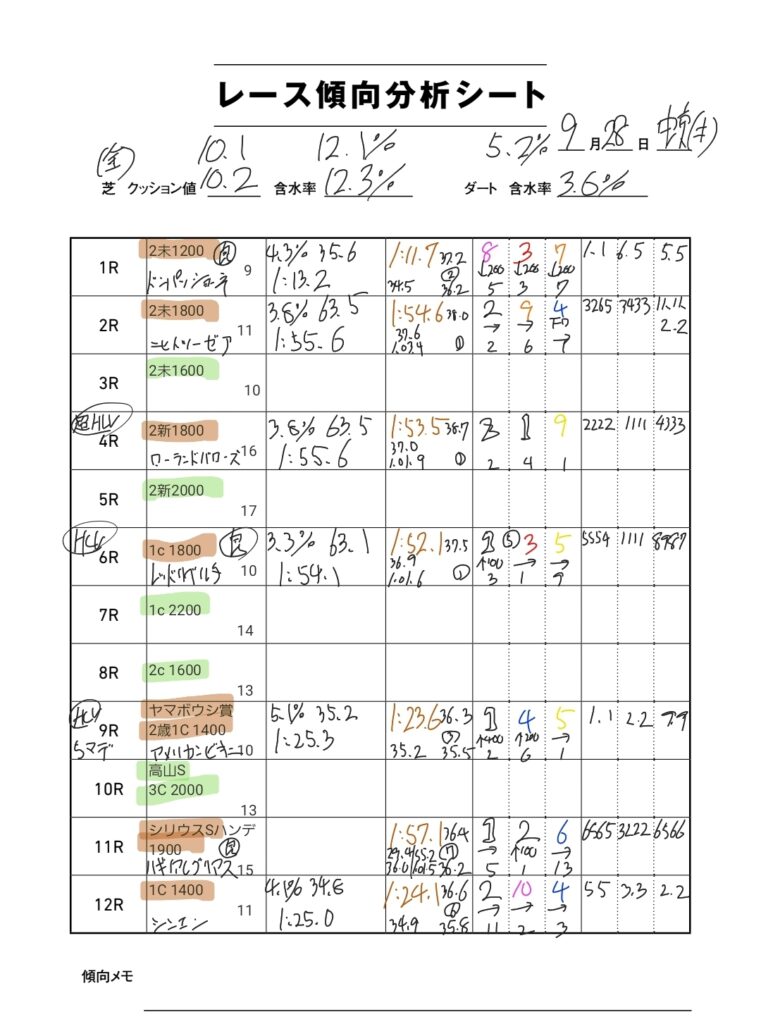 レース傾向分析シート
(金) 10.1 12.1% 5.2%
芝 クッション値 10.2 含水率 12.3% ダート 含水率 3.6% 9月28日
1R 2未1200 9 4.3% 35.6 1:11.7 37.2 8 3 7 1.1 6.5 5.5
1:13.2 34.5 ② 36.2 ↓200 ↓200 ↓200
5 3 7
2R 2未1800 11 3.8% 63.5 1:54.6 38.0 2 9 4 3265 3433 11.11
1:55.6 37.6 → → → 2.2
1.03.4 ① 2 6 7
3R 2未1600 10
超HLV
4R 2新1800 16 3.8% 63.5 1:53.5 38.7 1 9 2222 1111 4333
ローランドバローズ 1:55.6 37.0
1.01.9 ① 2 4 1
5R 2新2000 17
6R 1c 1800 10 3.3% 63.1 1:52.1 37.5 ⑤ 3 5 5554 1111 8987
1:54.1 36.9 ↑100 → →
1.01.6 ① 3 1 9
7R 1c 2200 14
8R 2c 1600 13
9R ヤマボウシ賞 5.1% 35.2 1:23.6 36.3 1 4 5 1.1 2.2
2歳1C 1400 1:25.3 ↑200 →
アメリカンビキニ 10 35.2 35.5 2 6 1
10R 高山S
3C 2000 13
11R シリウスSハンデ 1:57.1 36.4 1 2 6 6565 3222 6566
1900 ⑦ → ↑100 →
ハギノアレグリアス 15 36.2 5 1 13
12R 1C 1400 11 4.1% 34.8 1:24.1 36.6 2 10 4 5.5 3.3 2.2
シンエン 1:25.0 → → →
34.9 35.8 11 2 3
傾向メモ